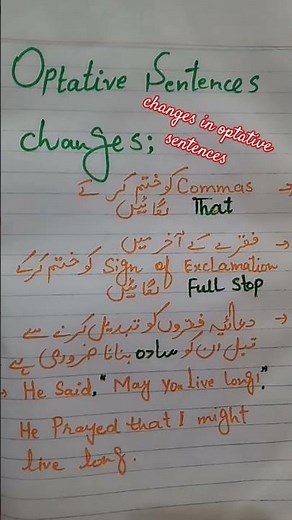 Optative Sentences
changes in optative
sentences
changes;
→ Commas کو ختم کر کے
That لگائیں
→ فقرے کے آخر میں
Sign of Exclamation کو ختم کرکے
Full Stop لگائیں
→ دعائیہ فقروں کو تبدیل کرنے سے
قبل ان کو سادہ بنانا ضروری ہے
→ He Said, "May you live long!"
He Prayed that I might
live long.